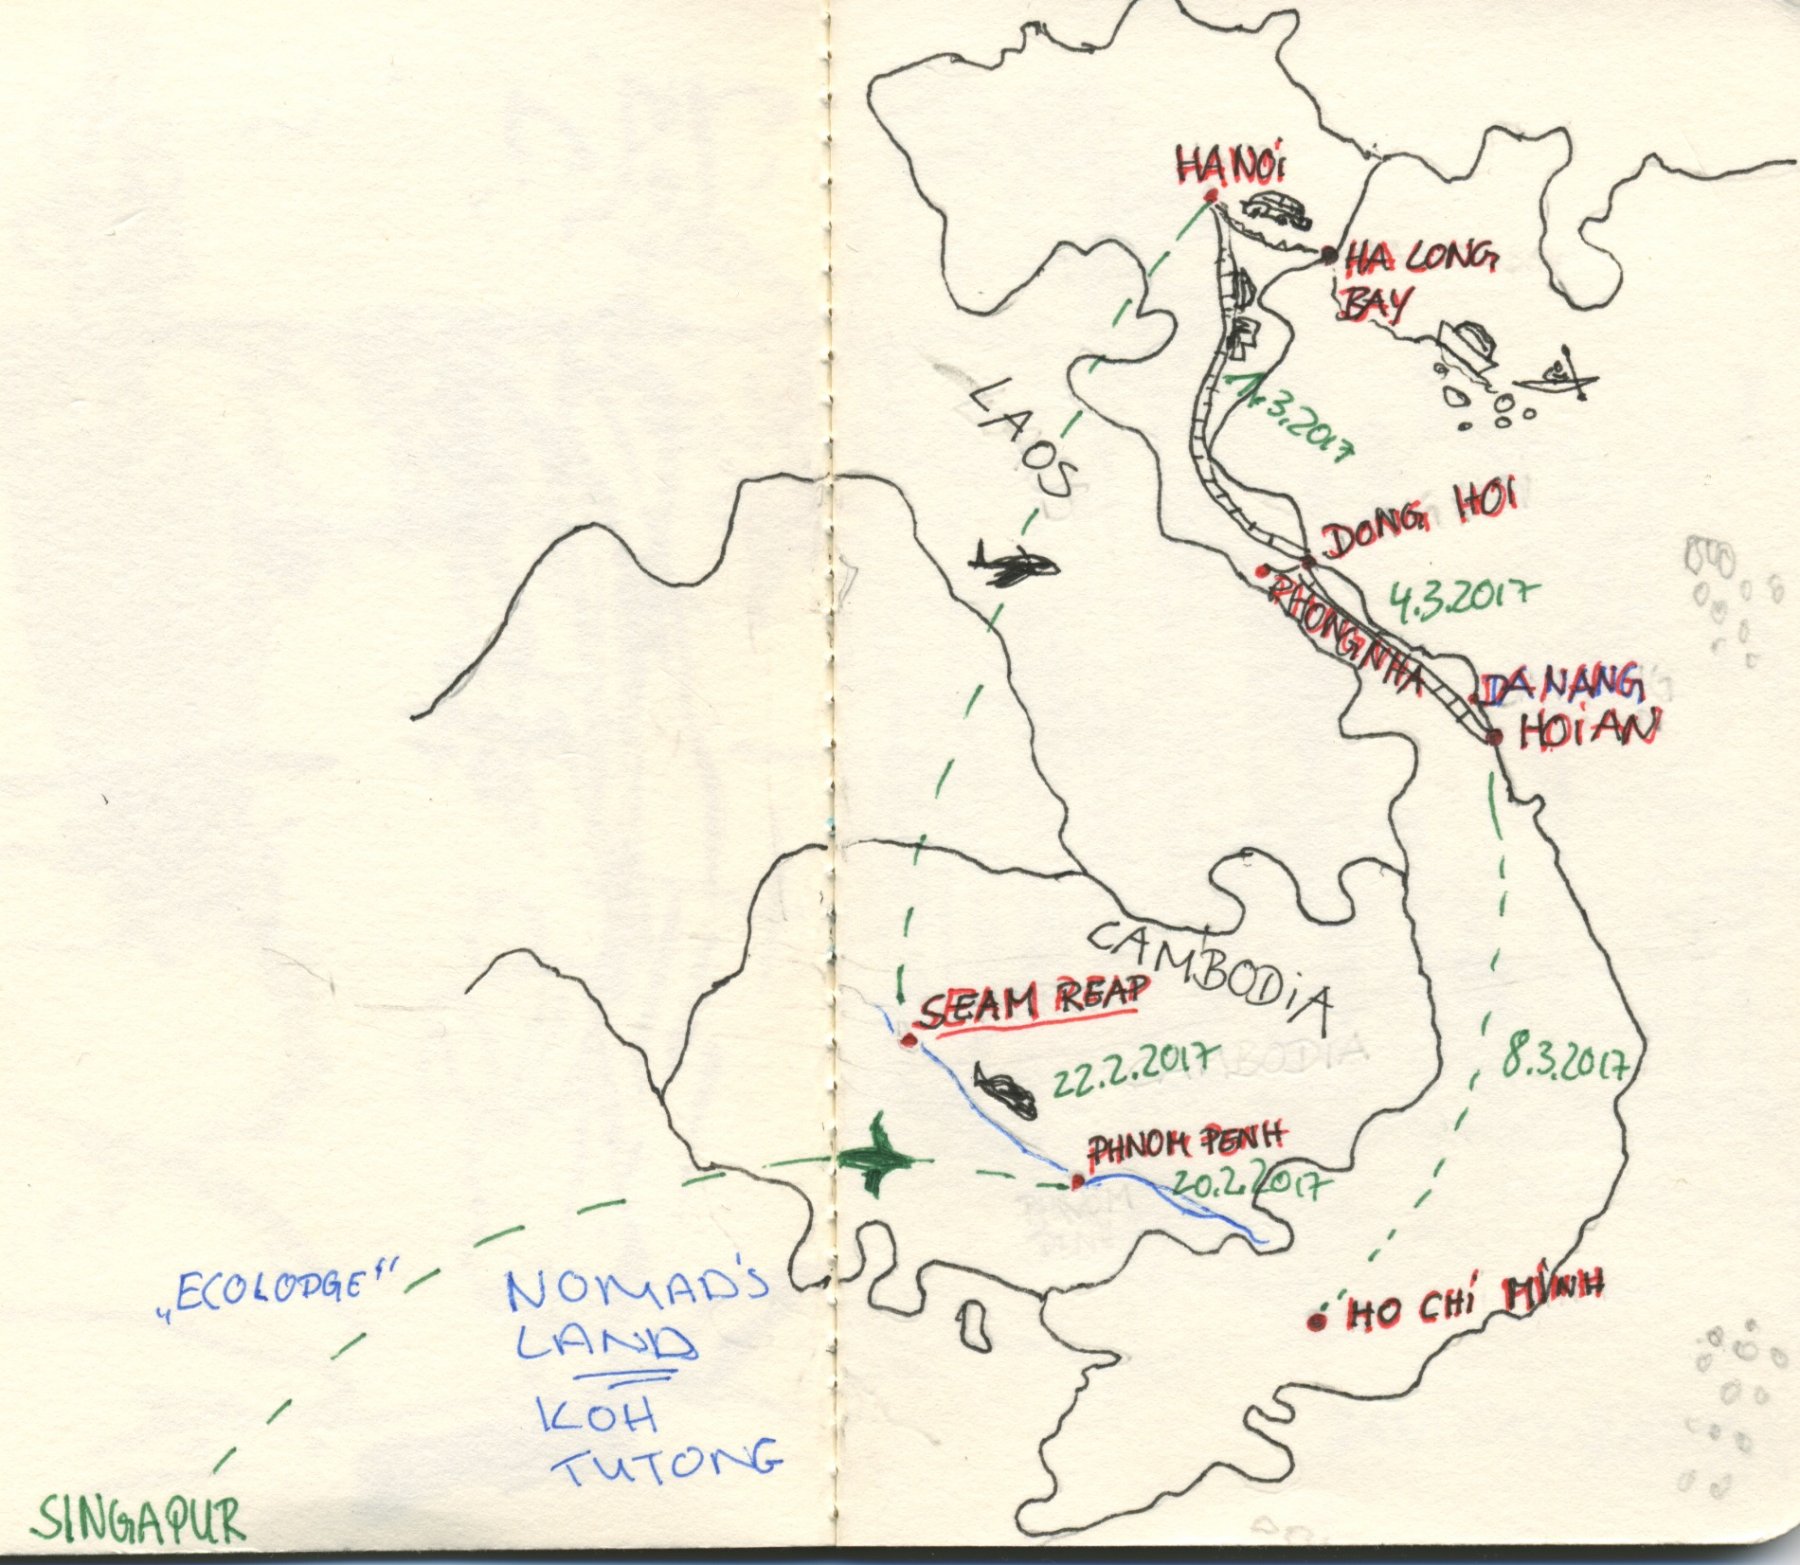 HANOi
HA LONG
BAY
LAOS
1.3.2017
DONG HOI
PHONG NHA
4.3.2017
DA NANG
HOiAN
CAMBODiA
SEAM REAP
22.2.2017
8.3.2017
PHNOM PENH
20.2.2017
„ECOLODGE“
NOMAD'S
LAND
KOH
TUTONG
HO CHi MiNH
SINGAPUR